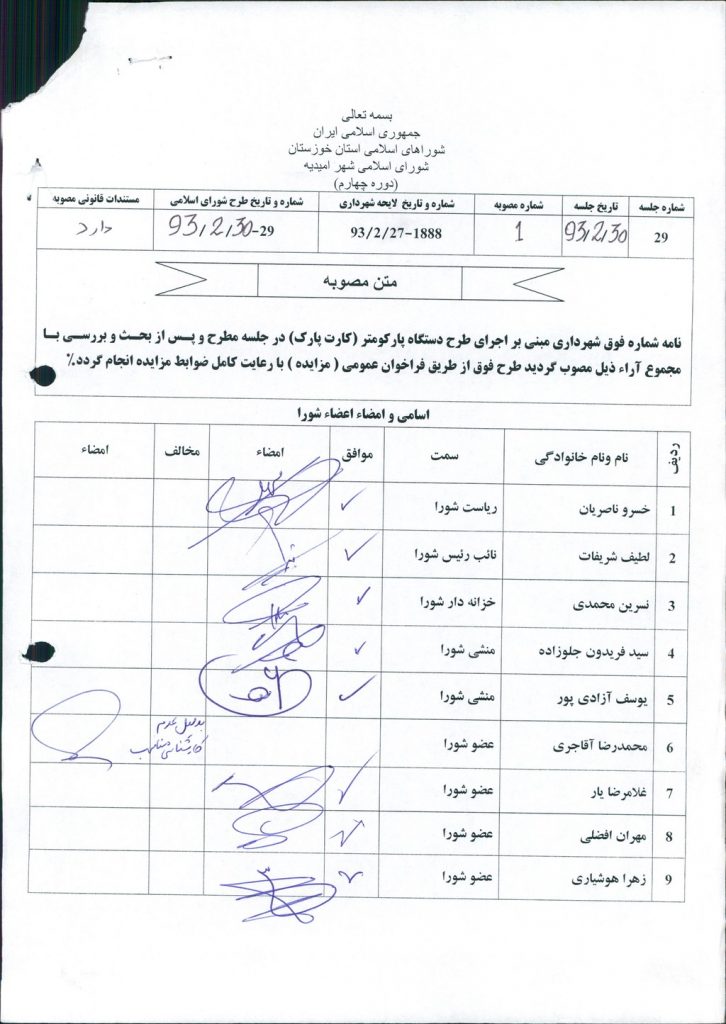 بسمه تعالی
جمهوری اسلامی ایران
شوراهای اسلامی استان خوزستان
شورای اسلامی شهر امیدیه
(دوره چهارم)
شماره جلسه تاریخ جلسه شماره مصوبه شماره و تاریخ لایحه شهرداری شماره و تاریخ طرح شورای اسلامی مستندات قانونی مصوبه
29 93/2/30 1 93/2/27-1888 93/2/30-29 دارد
متن مصوبه
نامه شماره فوق شهرداری مبنی بر اجرای طرح دستگاه پارکومتر (کارت پارک) در جلسه مطرح و پس از بحث و بررسی با
مجموع آراء ذیل مصوب گردید طرح فوق از طریق فراخوان عمومی ( مزایده ) با رعایت کامل ضوابط مزایده انجام گردد.٪
اسامی و امضاء اعضاء شورا
ردیف نام ونام خانوادگی سمت موافق امضاء مخالف امضاء
1 خسرو ناصریان ریاست شورا ✓
2 لطیف شریفات نائب رئیس شورا ✓
3 نسرین محمدی خزانه دار شورا ✓
4 سید فریدون جلوزاده منشی شورا ✓
5 یوسف آزادی پور منشی شورا ✓
6 محمدرضا آقاجری عضو شورا بدلیل عدم
کارشناسی مناسب
7 غلامرضا یار عضو شورا ✓
8 مهران افضلی عضو شورا ✓
9 زهرا هوشیاری عضو شورا ✓